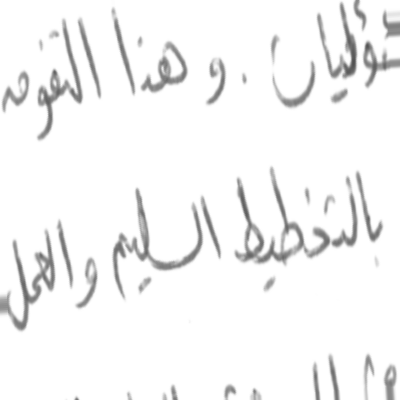 ؤليات . و هذا التفوق
بالتخطيط السليم والعمل